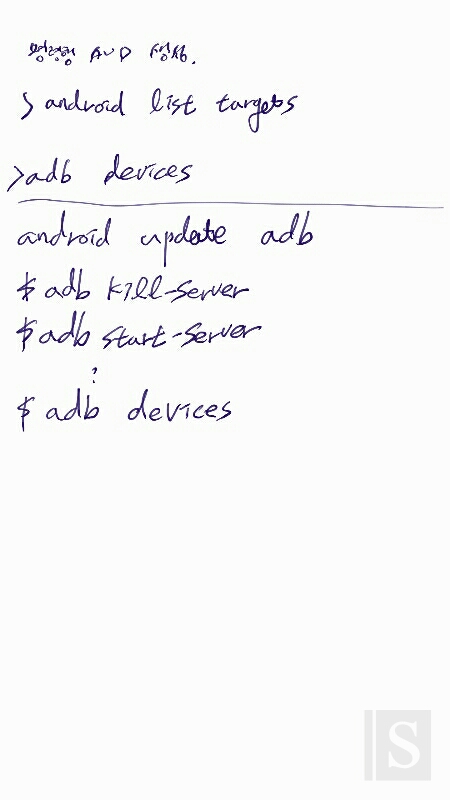 명령행 AVD 생성.
> android list targets
> adb devices
android update adb
$ adb kill-server
$ adb start-server
:
$ adb devices
S